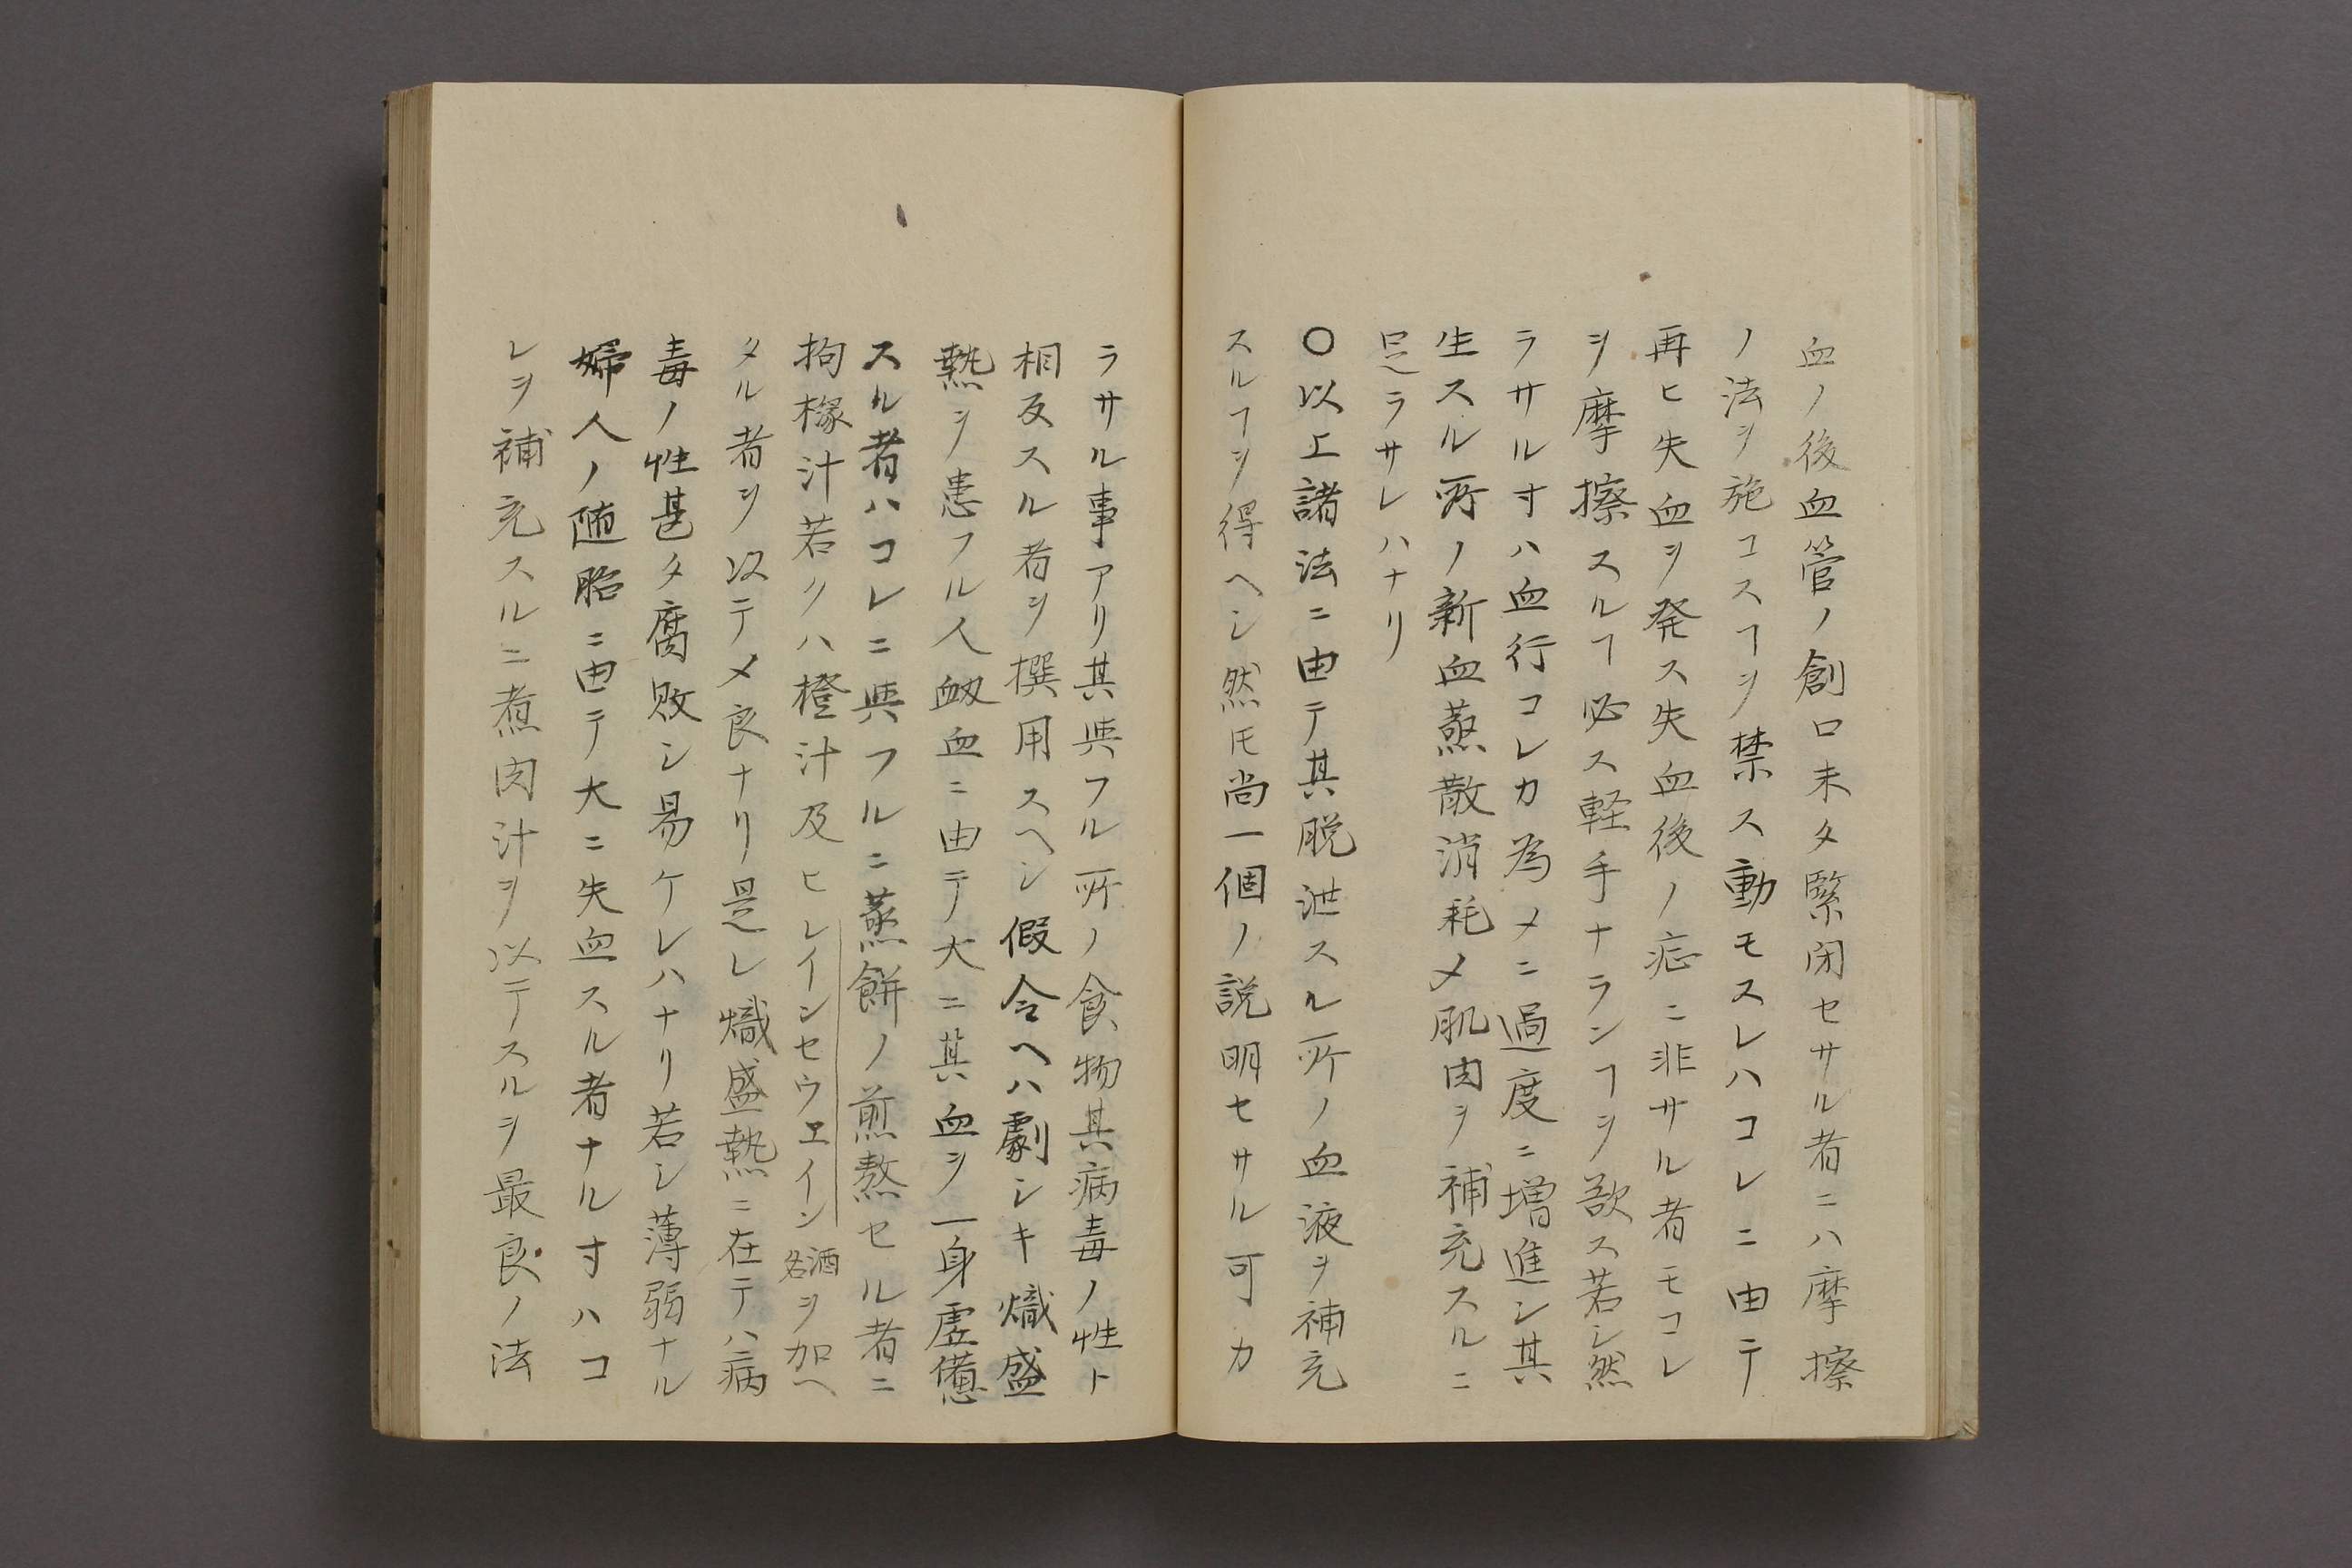 血ノ後血管ノ創口未タ緊閉セサル者ニハ摩擦
ノ法ヲ施コスヿヲ禁ス動モスレハコレニ由テ
再ヒ失血ヲ発ス失血後ノ症ニ非サル者モコレ
ヲ摩擦スルヿ必ス軽手ナランヿヲ欲ス若シ然
ラサル寸ハ血行コレカ為メニ過度ニ増進シ其
生スル所ノ新血蒸散消耗〆肌肉ヲ補充スルニ
足ラサレハナリ
〇以上諸法ニ由テ其脱泄スル所ノ血液ヲ補充
スルヿヲ得ヘシ然𪜈尚一個ノ説明セサル可カ
ラサル事アリ其與フル所ノ食物其病毒ノ性ト
相反スル者ヲ撰用スヘシ假令ヘハ劇シキ熾盛
熱ヲ患フル人衂血ニ由テ大ニ其血ヲ一身虚憊
スル者ハコレニ與フルニ蒸餅ノ煎熬セル者ニ
拘櫞汁若クハ橙汁及ヒレインセウエイン酒名ヲ加ヘ
タル者ヲ以テ〆良ナリ是レ熾盛熱ニ在テハ病
毒ノ性甚タ腐敗シ易ケレハナリ若シ薄弱ナル
婦人ノ堕胎ニ由テ大ニ失血スル者ナル寸ハコ
レヲ補充スルニ煮肉汁ヲ以テスルヲ最良ノ法